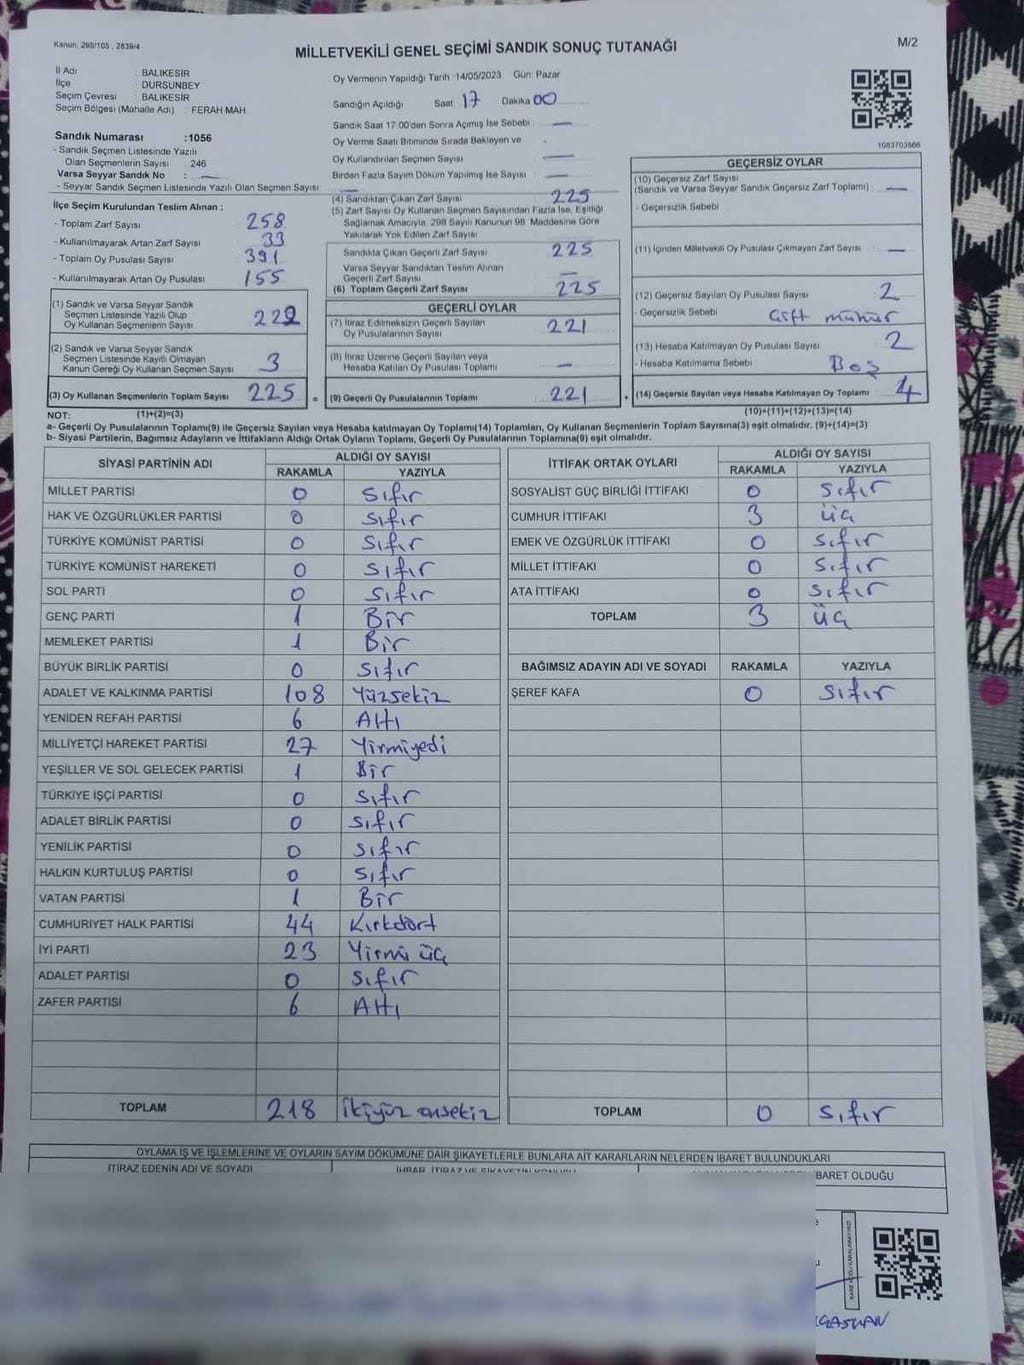 Kanun: 298/105 , 2839/4
MİLLETVEKİLİ GENEL SEÇİMİ SANDIK SONUÇ TUTANAĞI
M/2
İl Adı : BALIKESİR
İlçe : DURSUNBEY
Seçim Çevresi : BALIKESİR
Seçim Bölgesi (Mahalle Adı) : FERAH MAH.
Sandık Numarası :1056
- Sandık Seçmen Listesinde Yazılı
Olan Seçmenlerin Sayısı : 246
Varsa Seyyar Sandık No : —
- Seyyar Sandık Seçmen Listesinde Yazılı Olan Seçmen Sayısı: —
İlçe Seçim Kurulundan Teslim Alınan :
- Toplam Zarf Sayısı 258
- Kullanılmayarak Artan Zarf Sayısı 33
- Toplam Oy Pusulası Sayısı 391
- Kullanılmayarak Artan Oy Pusulası 155
(1) Sandık ve Varsa Seyyar Sandık
Seçmen Listesinde Yazılı Olup
Oy Kullanan Seçmenlerin Sayısı 222
(2) Sandık ve Varsa Seyyar Sandık
Seçmen Listesinde Kayıtlı Olmayan
Kanun Gereği Oy Kullanan Seçmen Sayısı 3
(3) Oy Kullanan Seçmenlerin Toplam Sayısı 225
Oy Vermenin Yapıldığı Tarih 14/05/2023 Gün: Pazar
Sandığın Açıldığı Saat 17 Dakika 00
Sandık Saat 17.00'den Sonra Açılmış İse Sebebi : —
Oy Verme Saati Bitiminde Sırada Bekleyen ve -
Oy Kullandırılan Seçmen Sayısı —
Birden Fazla Sayım Döküm Yapılmış İse Sayısı : —
(4) Sandıktan Çıkan Zarf Sayısı 225
(5) Zarf Sayısı Oy Kullanan Seçmen Sayısından Fazla İse, Eşitliği
Sağlamak Amacıyla, 298 Sayılı Kanunun 98. Maddesine Göre
Yakılarak Yok Edilen Zarf Sayısı
Sandıkta Çıkan Geçerli Zarf Sayısı 225
Varsa Seyyar Sandıktan Teslim Alınan
Geçerli Zarf Sayısı —
(6) Toplam Geçerli Zarf Sayısı 225
GEÇERLİ OYLAR
(7) İtiraz Edilmeksizin Geçerli Sayılan
Oy Pusulalarının Sayısı 221
(8) İtiraz Üzerine Geçerli Sayılan veya
Hesaba Katılan Oy Pusulası Toplamı —
= (9) Geçerli Oy Pusulalarının Toplamı 221
1083703566
GEÇERSİZ OYLAR
(10) Geçersiz Zarf Sayısı
(Sandık ve Varsa Seyyar Sandık Geçersiz Zarf Toplamı) : —
- Geçersizlik Sebebi
(11) İçinden Milletvekili Oy Pusulası Çıkmayan Zarf Sayısı —
(12) Geçersiz Sayılan Oy Pusulası Sayısı 2
- Geçersizlik Sebebi Çift mühür
(13) Hesaba Katılmayan Oy Pusulası Sayısı 2
- Hesaba Katılmama Sebebi Boş
+ (14) Geçersiz Sayılan veya Hesaba Katılmayan Oy Toplamı 4
NOT: (1)+(2)=(3) (10)+(11)+(12)+(13)=(14)
a- Geçerli Oy Pusulalarının Toplamı(9) ile Geçersiz Sayılan veya Hesaba katılmayan Oy Toplamı(14) Toplamları, Oy Kullanan Seçmenlerin Toplam Sayısına(3) eşit olmalıdır. (9)+(14)=(3)
b- Siyasi Partilerin, Bağımsız Adayların ve İttifakların Aldığı Ortak Oyların Toplamı, Geçerli Oy Pusulalarının Toplamına(9) eşit olmalıdır.
SİYASİ PARTİNİN ADI ALDIĞI OY SAYISI
RAKAMLA YAZIYLA
MİLLET PARTİSİ 0 Sıfır
HAK VE ÖZGÜRLÜKLER PARTİSİ 0 Sıfır
TÜRKİYE KOMÜNİST PARTİSİ 0 Sıfır
TÜRKİYE KOMÜNİST HAREKETİ 0 Sıfır
SOL PARTİ 0 Sıfır
GENÇ PARTİ 1 Bir
MEMLEKET PARTİSİ 1 Bir
BÜYÜK BİRLİK PARTİSİ 0 Sıfır
ADALET VE KALKINMA PARTİSİ 108 Yüzsekiz
YENİDEN REFAH PARTİSİ 6 Altı
MİLLİYETÇİ HAREKET PARTİSİ 27 Yirmiyedi
YEŞİLLER VE SOL GELECEK PARTİSİ 1 Bir
TÜRKİYE İŞÇİ PARTİSİ 0 Sıfır
ADALET BİRLİK PARTİSİ 0 Sıfır
YENİLİK PARTİSİ 0 Sıfır
HALKIN KURTULUŞ PARTİSİ 0 Sıfır
VATAN PARTİSİ 1 Bir
CUMHURİYET HALK PARTİSİ 44 Kırkdört
İYİ PARTİ 23 Yirmi üç
ADALET PARTİSİ 0 Sıfır
ZAFER PARTİSİ 6 Altı
TOPLAM 218 İkiyüz onsekiz
İTTİFAK ORTAK OYLARI ALDIĞI OY SAYISI
RAKAMLA YAZIYLA
SOSYALİST GÜÇ BİRLİĞİ İTTİFAKI 0 Sıfır
CUMHUR İTTİFAKI 3 üç
EMEK VE ÖZGÜRLÜK İTTİFAKI 0 Sıfır
MİLLET İTTİFAKI 0 Sıfır
ATA İTTİFAKI 0 Sıfır
TOPLAM 3 üç
BAĞIMSIZ ADAYIN ADI VE SOYADI RAKAMLA YAZIYLA
ŞEREF KAFA 0 Sıfır
TOPLAM 0 Sıfır
OYLAMA İŞ VE İŞLEMLERİNE VE OYLARIN SAYIM DÖKÜMÜNE DAİR ŞİKAYETLERLE BUNLARA AİT KARARLARIN NELERDEN İBARET BULUNDUKLARI
İTİRAZ EDENİN ADI VE SOYADI
İBARET OLDUĞU